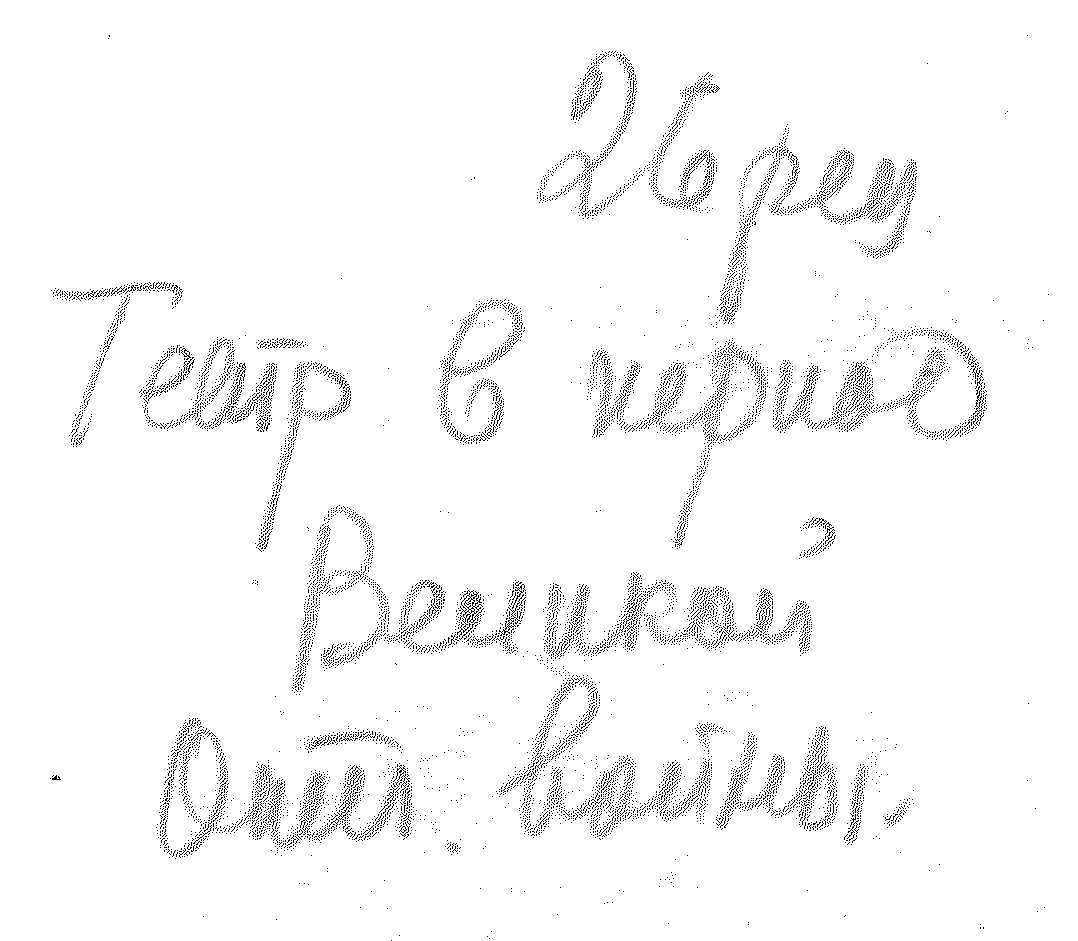 26 рец
Театр в период
Великой
Отеч. войны.